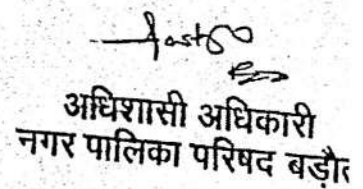 अधिशासी अधिकारी
नगर पालिका परिषद बड़ौत